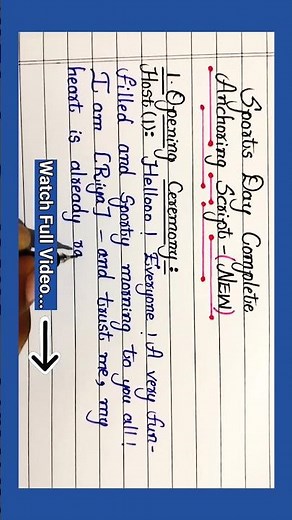 Sports Day Complete
Anchoring Script-(NEW)
1. Opening Ceremony:
Host(1): Hellooo! Everyone! A very fun-
filled and Sporty morning to you all!
I am [Riya] - and trust me, my
heart is already
Watch Full Video...